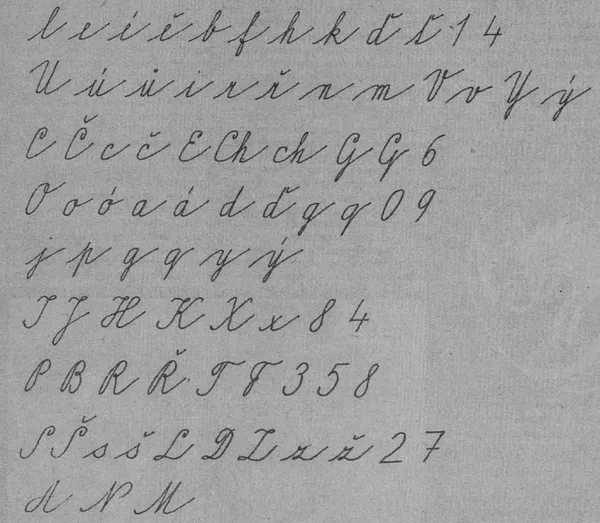 l e é ě b f h k ď ť 1 4
U ú ů i r ř n m V v Y ý
C Č c č E Ch ch G G 6
O o ó a á d ď g q 0 9
j p g q y ý
I J H K X x 8 4
P B R Ř T F 3 5 8
S Š s š L D Z z ž 2 7
A N M